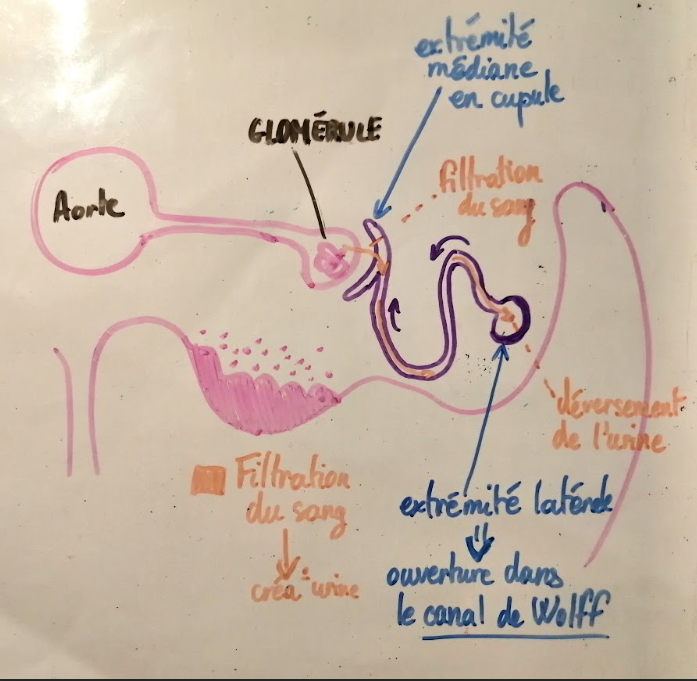 extrémité
médiane
en cupule
GLOMÉRULE
filtration
du sang
Aorte
déversement
de l'urine
Filtration
du sang
créa° urine
extrémité latérale
ouverture dans
le canal de Wolff